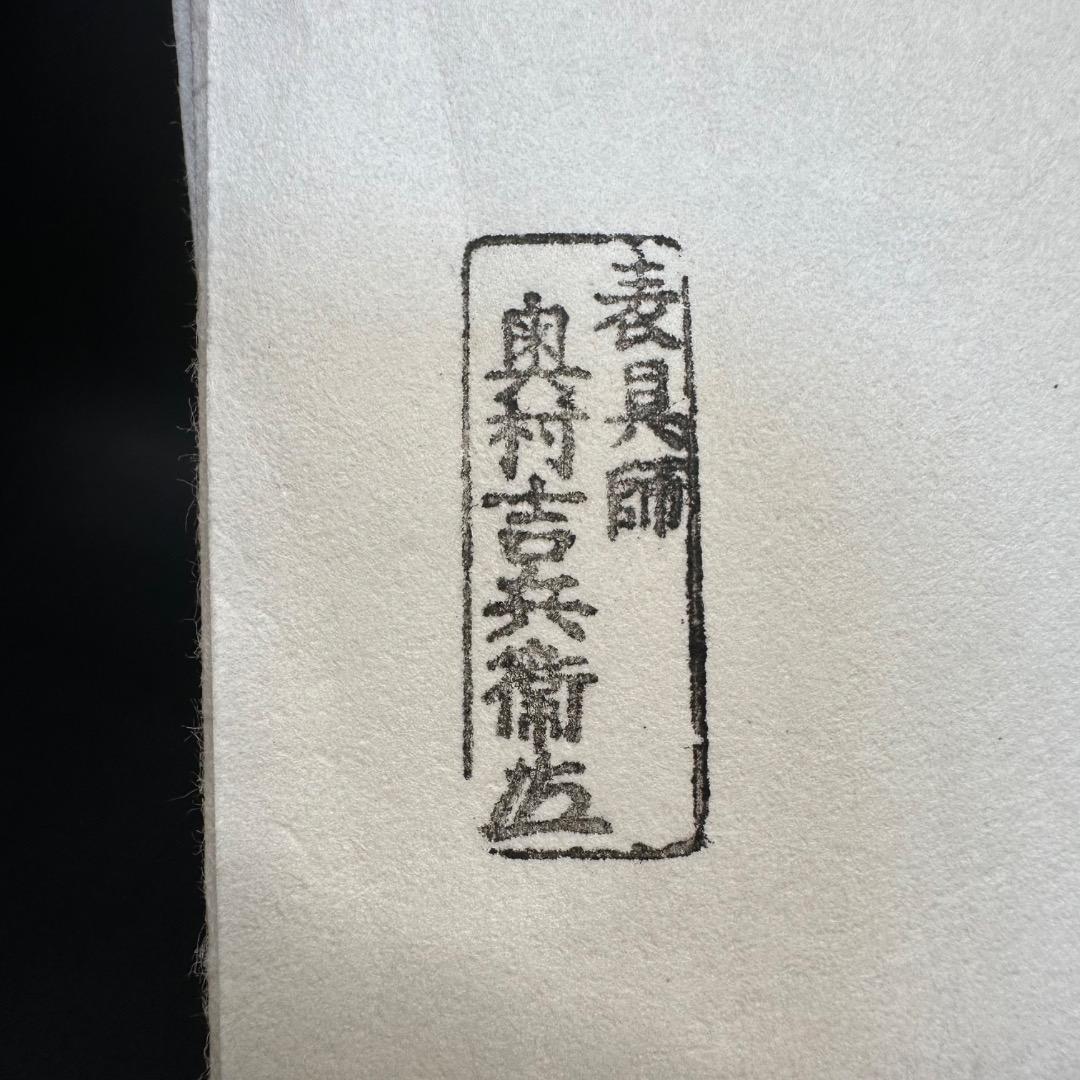 表具師
奥村吉兵衛